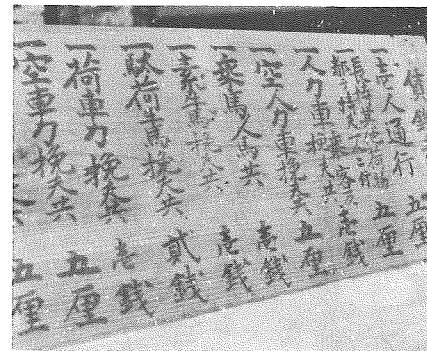 賃銭
一壱人通行 五厘
長持其他荷物 壱人ニ付 五厘
一人力車挽夫共 壱銭
一空人力車挽夫共 五厘
一乗馬人馬共 壱銭
一素馬挽夫共 壱銭
一駄荷馬挽夫共 貳銭
一荷車力挽夫共 壱銭
一空車力挽夫共 五厘
夫共 五厘